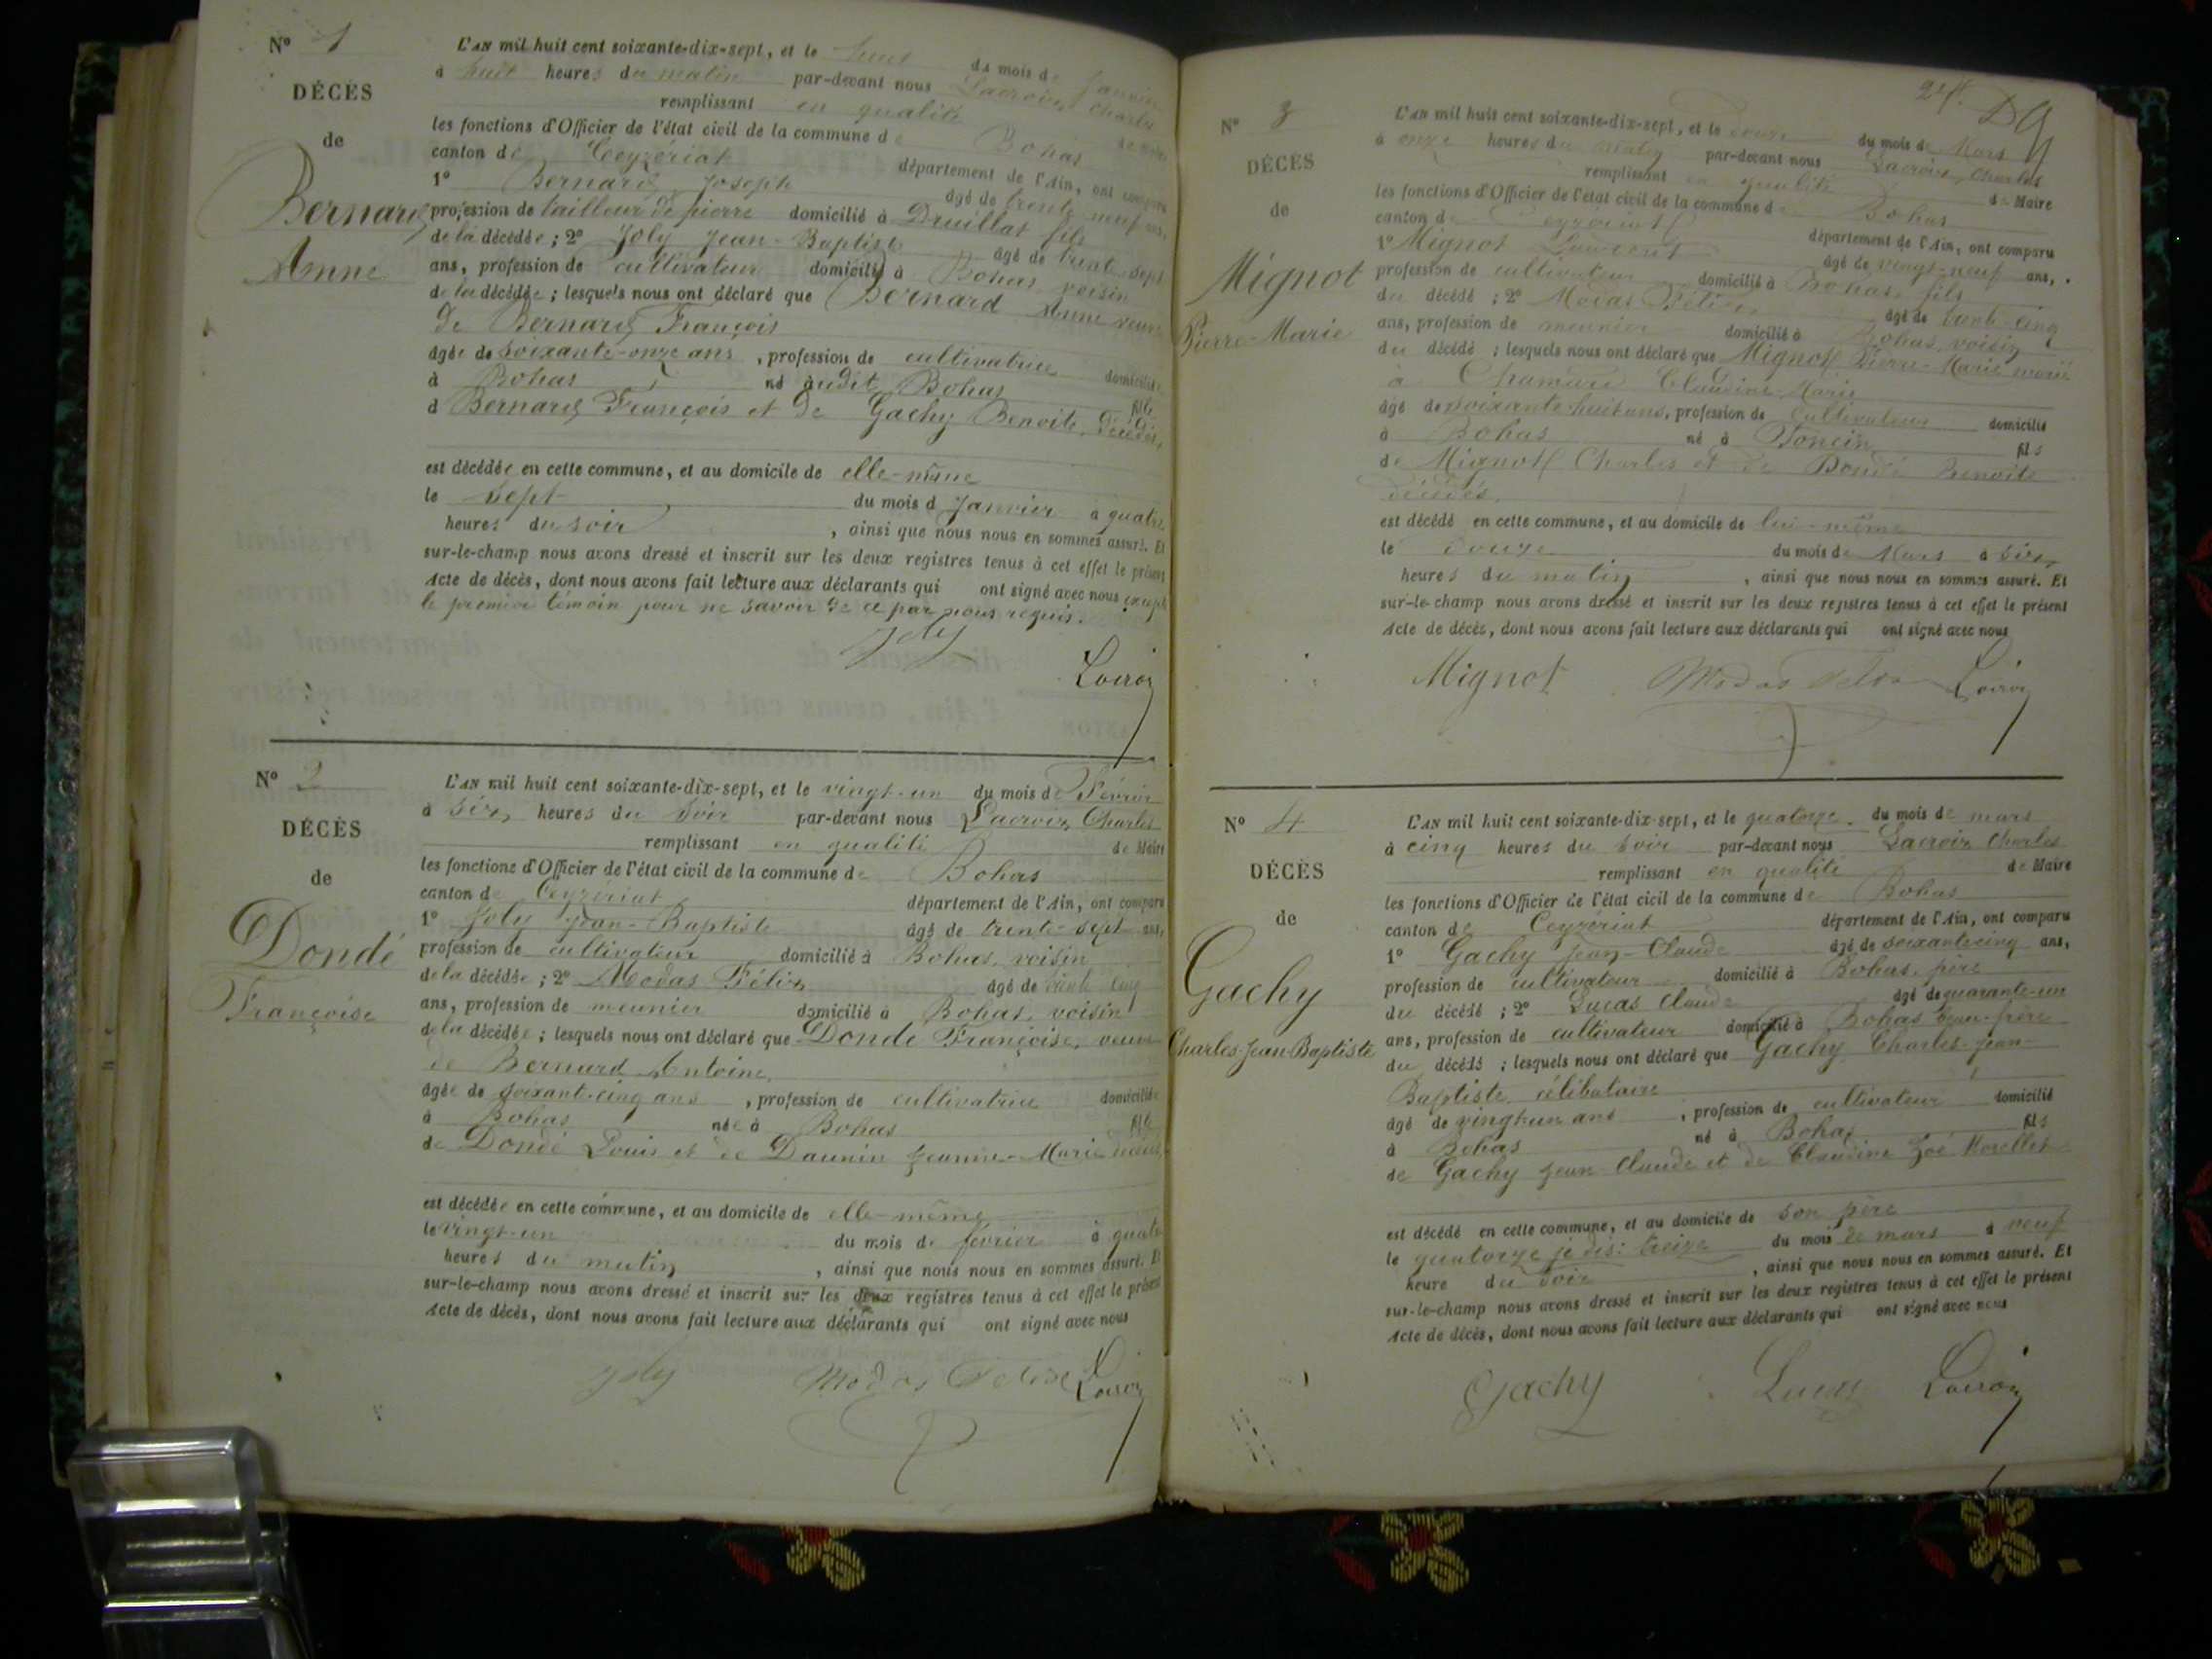 N° 1
DÉCÈS
de
Bernard
Anne
L'AN mil huit cent soixante-dix-sept, et le huit du mois de Janvier
à huit heures du matin par-devant nous Lacroix Charles
remplissant en qualité de Maire
les fonctions d'Officier de l'état civil de la commune de Bohas
canton de Ceyzériat département de l'Ain, ont comparu
1° Bernard Joseph âgé de trente neuf ans,
profession de tailleur de pierre domicilié à Druillat fils
de la décédée ; 2° Joly Jean-Baptiste âgé de trente sept
ans, profession de cultivateur domicilié à Bohas voisin
de la décédée ; lesquels nous ont déclaré que Bernard Anne veuve
de Bernard François
âgée de soixante-onze ans, profession de cultivatrice domiciliée
à Bohas né audit Bohas fille
d Bernard François et de Gachy Benoite, décédés,
est décédée en cette commune, et au domicile de elle-même
le sept du mois d Janvier à quatre
heures du soir, ainsi que nous nous en sommes assuré. Et
sur-le-champ nous avons dressé et inscrit sur les deux registres tenus à cet effet le présent
Acte de décès, dont nous avons fait lecture aux déclarants qui ont signé avec nous excepté
le premier témoin pour ne savoir de ce par nous requis.
Joly
Lacroix
N° 2
DÉCÈS
de
Dondé
Françoise
L'AN mil huit cent soixante-dix-sept, et le vingt-un du mois de Février
à six heures du soir par-devant nous Lacroix Charles
remplissant en qualité de Maire
les fonctions d'Officier de l'état civil de la commune de Bohas
canton de Ceyzériat département de l'Ain, ont comparu
1° Joly Jean-Baptiste âgé de trente-sept ans,
profession de cultivateur domicilié à Bohas, voisin
de la décédée ; 2° Modas Félix âgé de trente cinq
ans, profession de meunier domicilié à Bohas, voisin
de la décédée ; lesquels nous ont déclaré que Dondé Françoise, veuve
de Bernard Antoine,
âgée de soixante-cinq ans, profession de cultivatrice domiciliée
à Bohas née à Bohas fille
de Dondé Louis et de Daunin Jeanne-Marie
est décédée en cette commune, et au domicile de elle-même
le vingt-un du mois de février à quatre
heures du matin, ainsi que nous nous en sommes assuré. Et
sur-le-champ nous avons dressé et inscrit sur les deux registres tenus à cet effet le présent
Acte de décès, dont nous avons fait lecture aux déclarants qui ont signé avec nous
Joly Modas Félix Lacroix
N° 3
DÉCÈS
de
Mignot
Pierre-Marie
L'AN mil huit cent soixante-dix-sept, et le douze du mois de Mars
à onze heures du matin par-devant nous Lacroix, Charles
remplissant en qualité de Maire
les fonctions d'Officier de l'état civil de la commune de Bohas
canton de Ceyzériat département de l'Ain, ont comparu
1° Mignot Laurent âgé de vingt-neuf ans,
profession de cultivateur domicilié à Bohas, fils
du décédé ; 2° Modas Félix âgé de trente cinq
ans, profession de meunier domicilié à Bohas, voisin
du décédé ; lesquels nous ont déclaré que Mignot Pierre-Marie marié
à Claudine-Marie
âgé de soixante-huit ans, profession de cultivateur domicilié
à Bohas né à Poncin fils
de Mignot Charles et de Dondé Benoite
décédés,
est décédé en cette commune, et au domicile de lui-même
le douze du mois de Mars à six
heures du matin, ainsi que nous nous en sommes assuré. Et
sur-le-champ nous avons dressé et inscrit sur les deux registres tenus à cet effet le présent
Acte de décès, dont nous avons fait lecture aux déclarants qui ont signé avec nous
Mignot Modas Félix Lacroix
N° 4
DÉCÈS
de
Gachy
Charles-Jean-Baptiste
L'AN mil huit cent soixante-dix-sept, et le quatorze du mois de mars
à cinq heures du soir par-devant nous Lacroix Charles
remplissant en qualité de Maire
les fonctions d'Officier de l'état civil de la commune de Bohas
canton de Ceyzériat département de l'Ain, ont comparu
1° Gachy Jean-Claude âgé de soixante cinq ans,
profession de cultivateur domicilié à Bohas, père
du décédé ; 2° Lucas Claude âgé de quarante-un
ans, profession de cultivateur domicilié à Bohas beau-frère
du décédé ; lesquels nous ont déclaré que Gachy Charles-Jean-
Baptiste, célibataire
âgé de vingt-un ans, profession de cultivateur domicilié
à Bohas né à Bohas fils
de Gachy Jean Claude et de Claudine Zoé Morellet
est décédé en cette commune, et au domicile de son père
le quatorze je dis: treize du mois de mars à neuf
heure du soir, ainsi que nous nous en sommes assuré. Et
sur-le-champ nous avons dressé et inscrit sur les deux registres tenus à cet effet le présent
Acte de décès, dont nous avons fait lecture aux déclarants qui ont signé avec nous
Gachy Lucas Lacroix